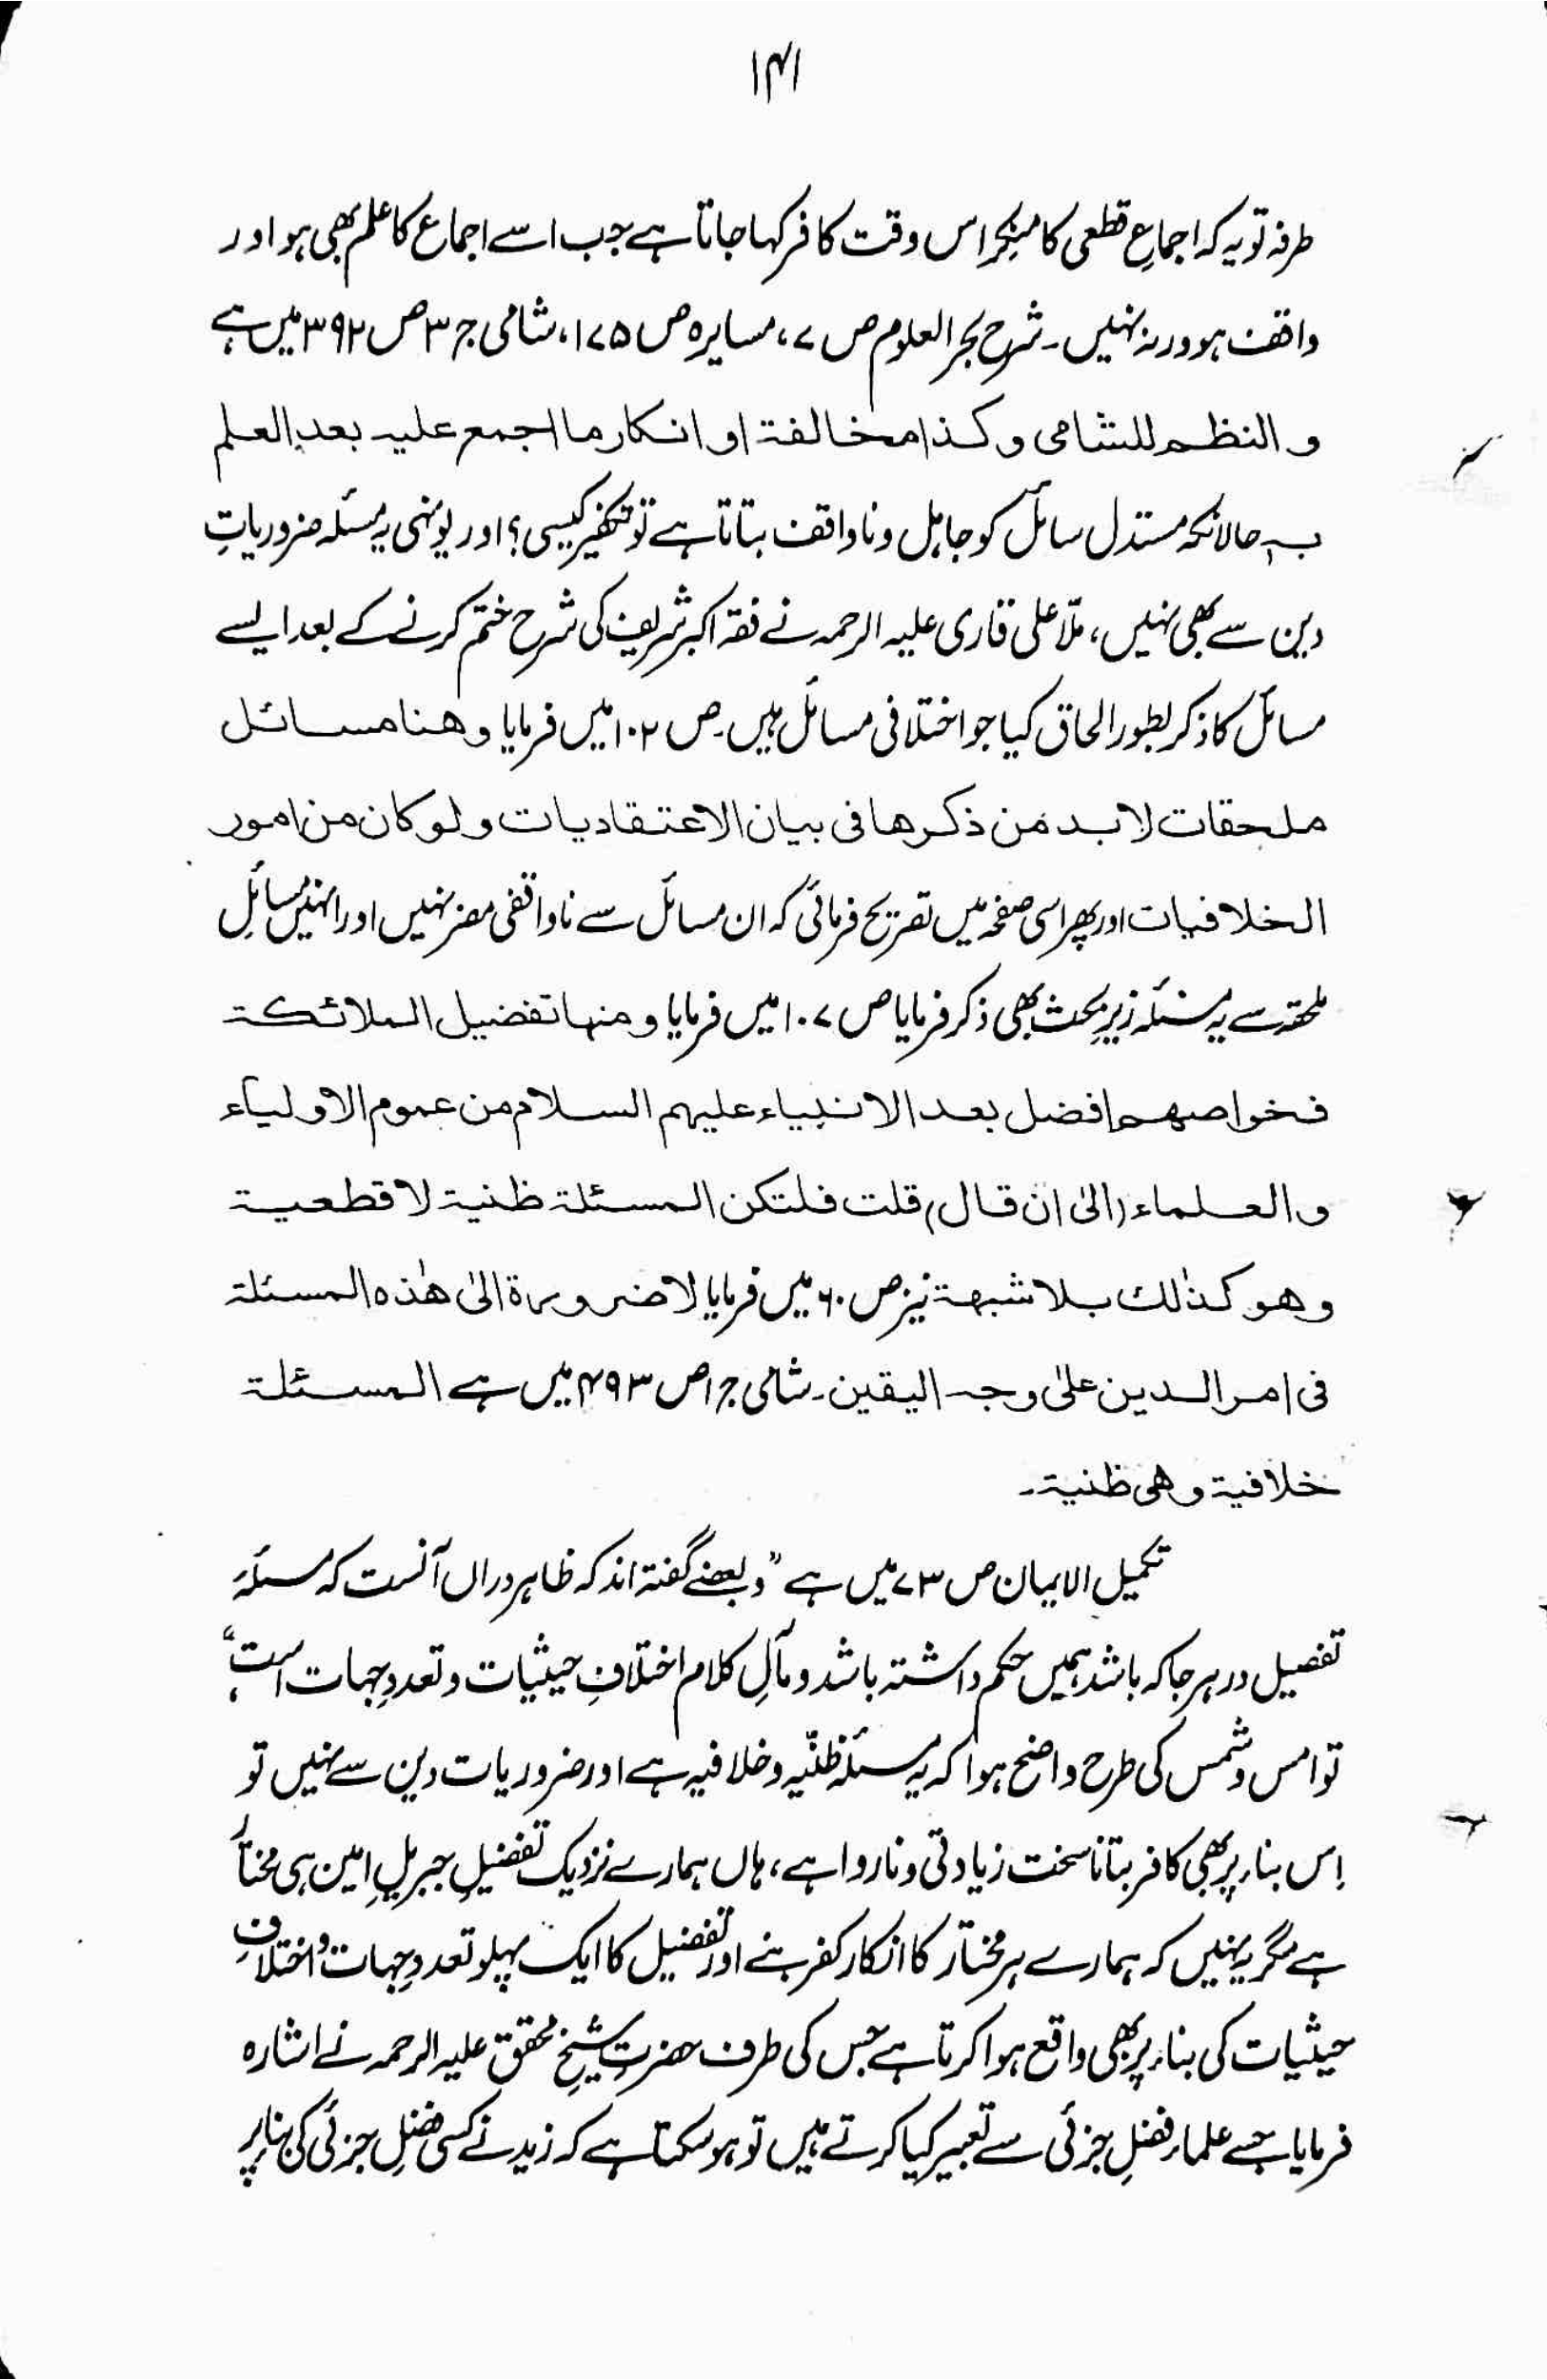 ۱۴۱
طرفہ تو یہ کہ اجماعِ قطعی کا منکِر اس وقت کافر کہا جاتا ہے جب اسے اجماع کا علم بھی ہو اور
واقف ہو ورنہ نہیں۔ شرح بحر العلوم ص ۷، مسایرہ ص ۱۷۵، شامی ج ۳ ص ۳۹۲ میں ہے
و النظم للشامی و کذا مخالفة او انکار ما اجمع علیہ بعد العلم
بہ حالانکہ مستدل سائل کو جاہل و ناواقف بتاتا ہے تو تکفیر کیسی؟ اور یونہی یہ مسئلہ ضروریاتِ
دین سے بھی نہیں، ملّا علی قاری علیہ الرحمہ نے فقہ اکبر شریف کی شرح ختم کرنے کے بعد ایسے
مسائل کا ذکر بطور الحاق کیا جو اختلافی مسائل ہیں۔ ص ۱۰۲ میں فرمایا و ھنا مسائل
ملحقات لا بد من ذکرھا فی بیان الاعتقادیات و لو کان من امور
الخلافیات اور پھر اسی صفحہ میں تصریح فرمائی کہ ان مسائل سے ناواقفی مضر نہیں اور انہیں مسائلِ
ملحقہ سے یہ مسئلہ زیرِ بحث بھی ذکر فرمایا ص ۱۰۷ میں فرمایا و منہا تفضیل الملائکة
فخواصھم افضل بعد الانبیاء علیہم السلام من عموم الاولیاء
و العلماء (الیٰ ان قال) قلت فلتکن المسئلة ظنیة لا قطعیة
و ھو کذٰلك بلا شبھة نیز ص ۶۰ میں فرمایا لا ضرورة الیٰ ھٰذہ المسئلة
فی امر الدین علیٰ وجہ الیقین۔ شامی ج ۱ ص ۴۹۳ میں ہے المسئلة
خلافیة و ھی ظنیة۔
تکمیل الایمان ص ۷۳ میں ہے ”و بعضے گفتہ اند کہ ظاہر دراں آنست کہ مسئلہَ
تفصیل در ہر جا کہ باشد ہمیں حکم داشتہ باشد و مآلِ کلام اختلافِ حیثیات و تعددِ جہات است“،
تو امس و شمس کی طرح واضح ہوا کہ یہ مسئلہ ظنّیہ و خلافیہ ہے اور ضروریات دین سے نہیں تو
اِس بناء پر بھی کافر بتانا سخت زیادتی و ناروا ہے، ہاں ہمارے نزدیک تفضیلِ جبریلِ امین ہی مختار
ہے مگر یہ نہیں کہ ہمارے ہر مختار کا انکار کفر بنے اور تفضیل کا ایک پہلو تعددِ جہات و اختلافِ
حیثیات کی بناء پر بھی واقع ہوا کرتا ہے جس کی طرف حضرتِ شیخِ محقق علیہ الرحمہ نے اشارہ
فرمایا جسے علماء فضلِ جزئی سے تعبیر کیا کرتے ہیں تو ہو سکتا ہے کہ زید نے کسی فضلِ جزئی کی بناء پر